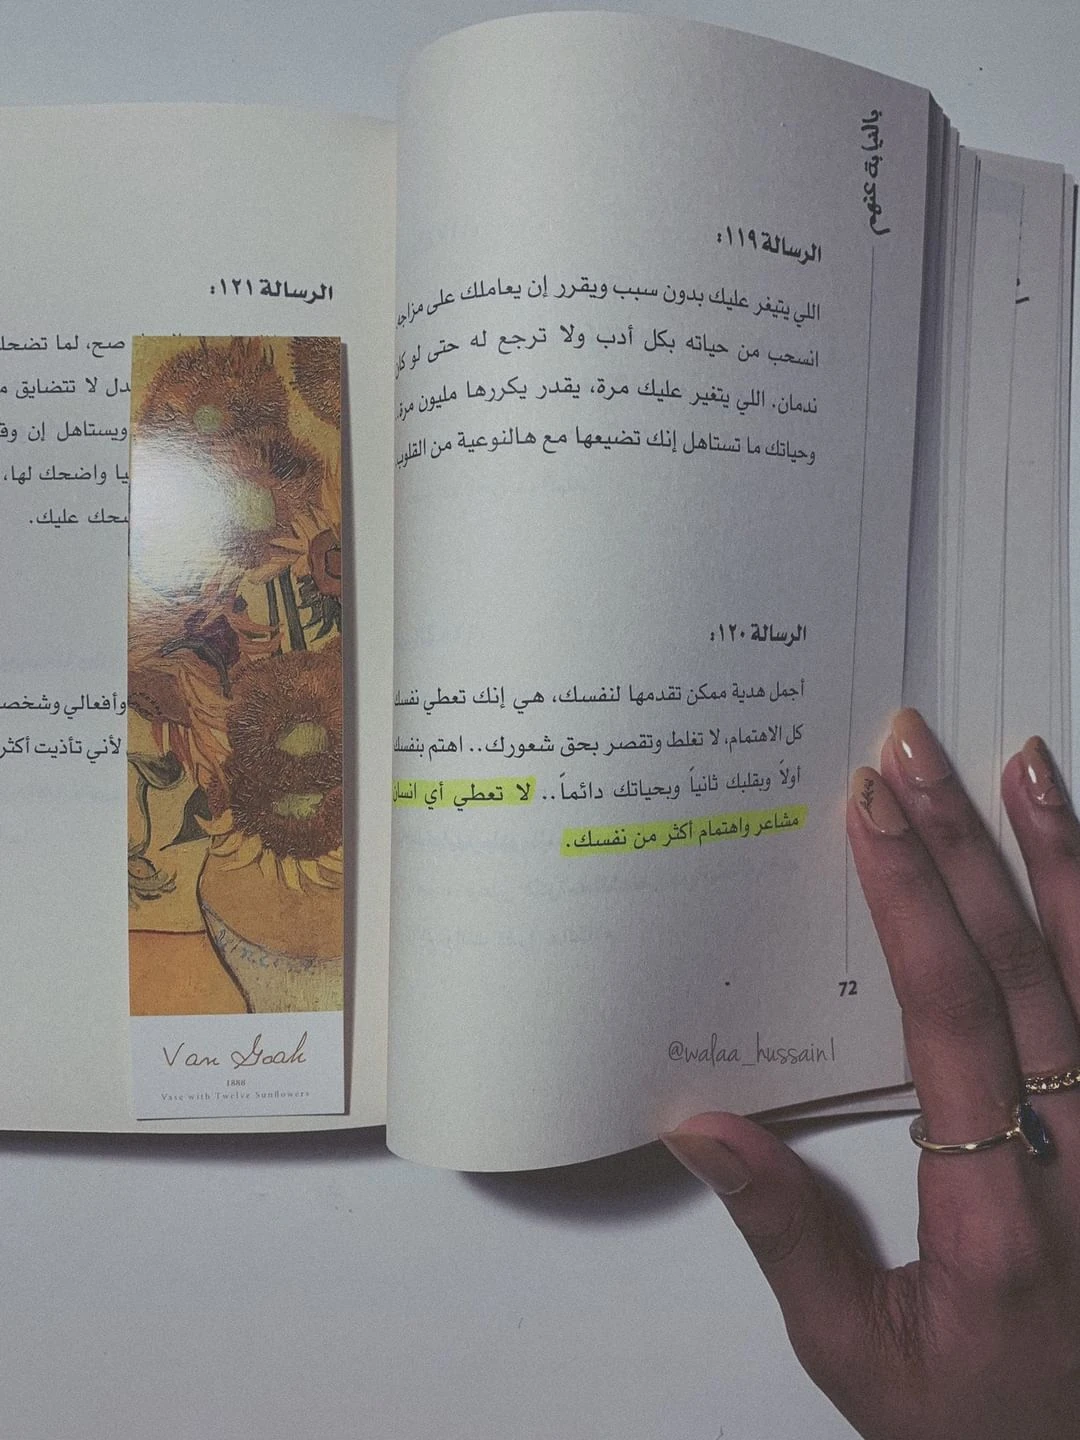 بالنيابة عنهم
الرسالة ١١٩:
اللي يتيغر عليك بدون سبب ويقرر إن يعاملك على مزاجه
انسحب من حياته بكل أدب ولا ترجع له حتى لو كان
ندمان. اللي يتغير عليك مرة، يقدر يكررها مليون مرة.
وحياتك ما تستاهل إنك تضيعها مع هالنوعية من القلوب
الرسالة ١٢٠:
أجمل هدية ممكن تقدمها لنفسك، هي إنك تعطي نفسك
كل الاهتمام، لا تغلط وتقصر بحق شعورك.. اهتم بنفسك
أولاً وبقلبك ثانياً وبحياتك دائماً.. لا تعطي أي انسان
مشاعر واهتمام أكثر من نفسك.
72
@walaa_hussain1
الرسالة ١٢١:
صح، لما تضحك
لا تتضايق
ويستاهل إن
واضحك لها،
عليك.
وأفعالي
لأني تأذيت أكثر
Van Goah
1888
Vase with Twelve Sunflowers